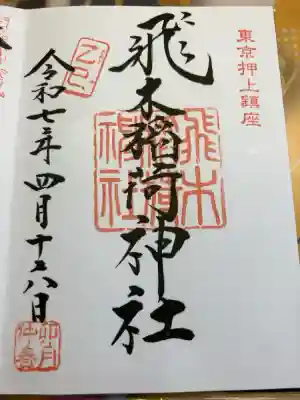 東京押上鎮座
飛木稲荷神社
飛木稲荷神社
乙巳
令和七年四月十八日
卯月